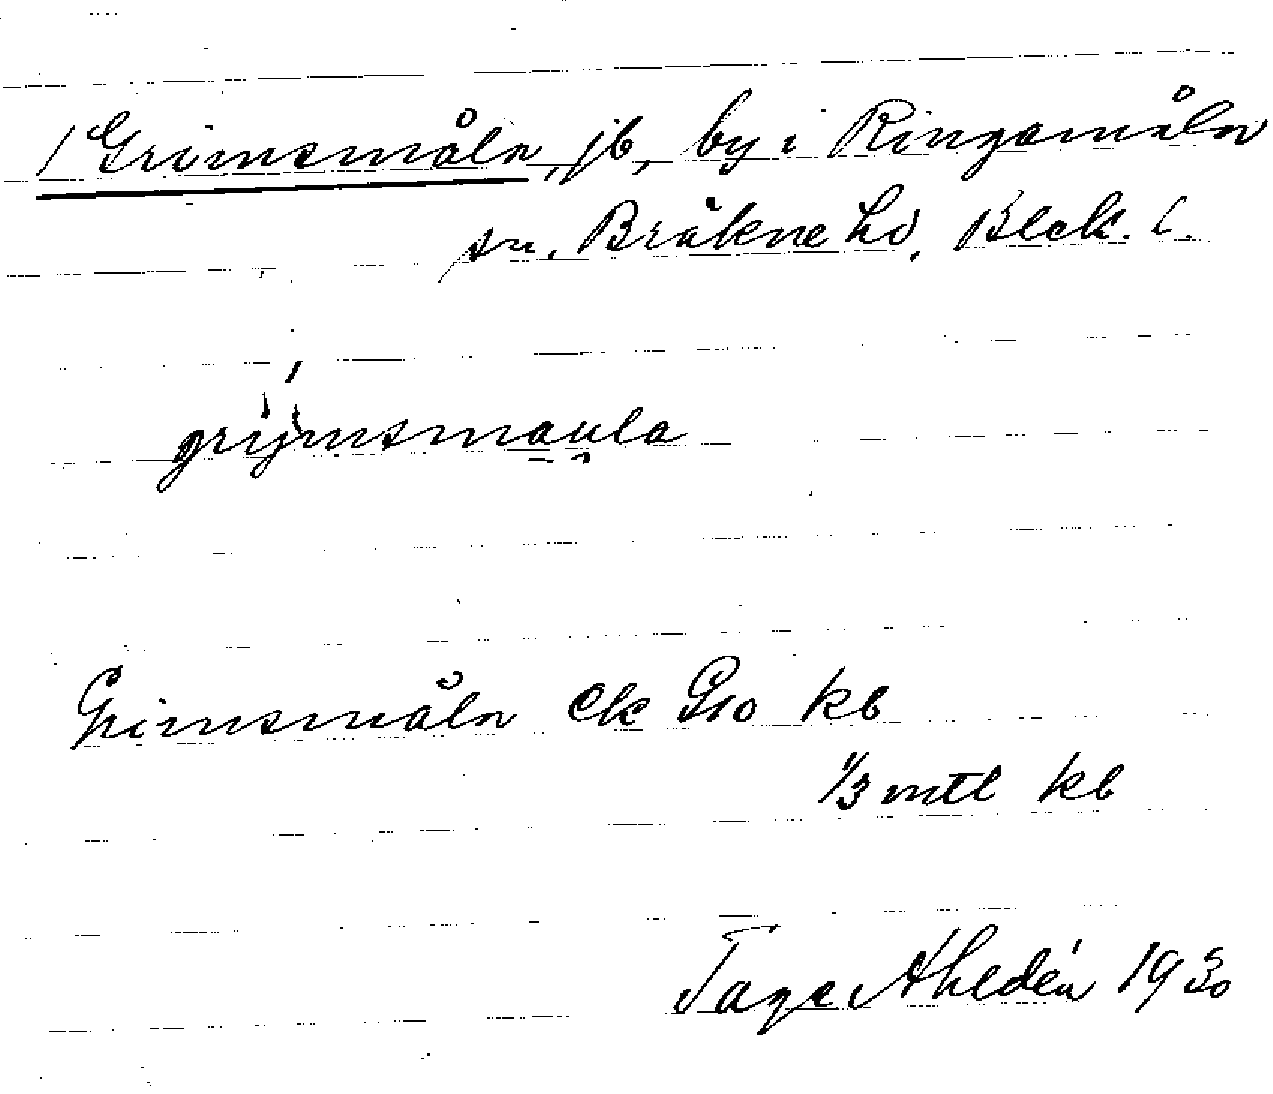 / Grimsmåla, jb, by i Ringamåla
sn. Bräkne hd. Blek. l.
grijmsmaula
Grimsmåla Ek G10 kb
1/3 mtl kb
Tage Ahldén 1930